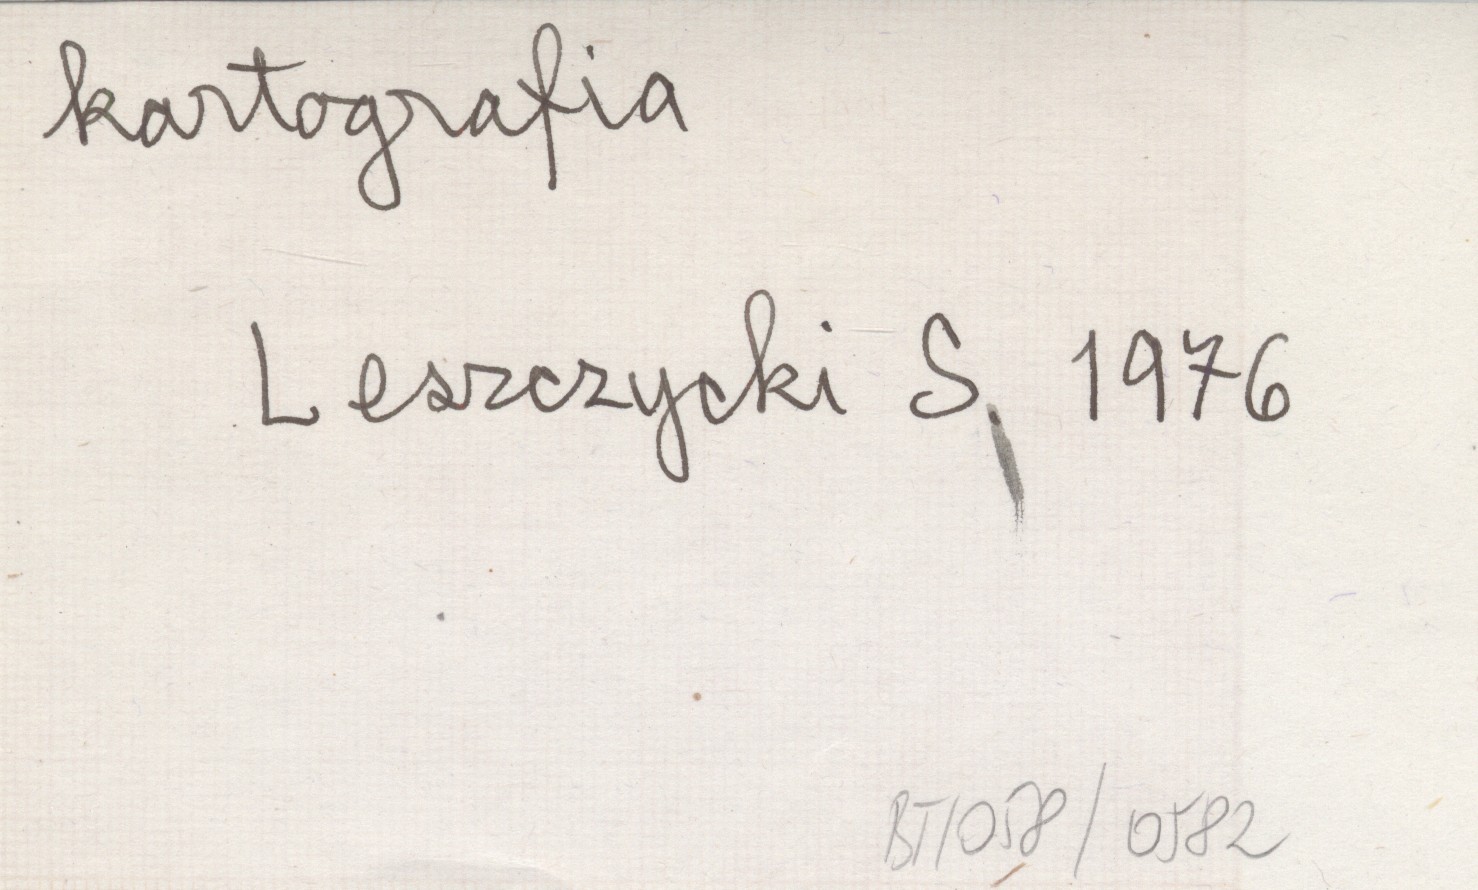 kartografia
Leszczycki S, 1976
BT/058/0582